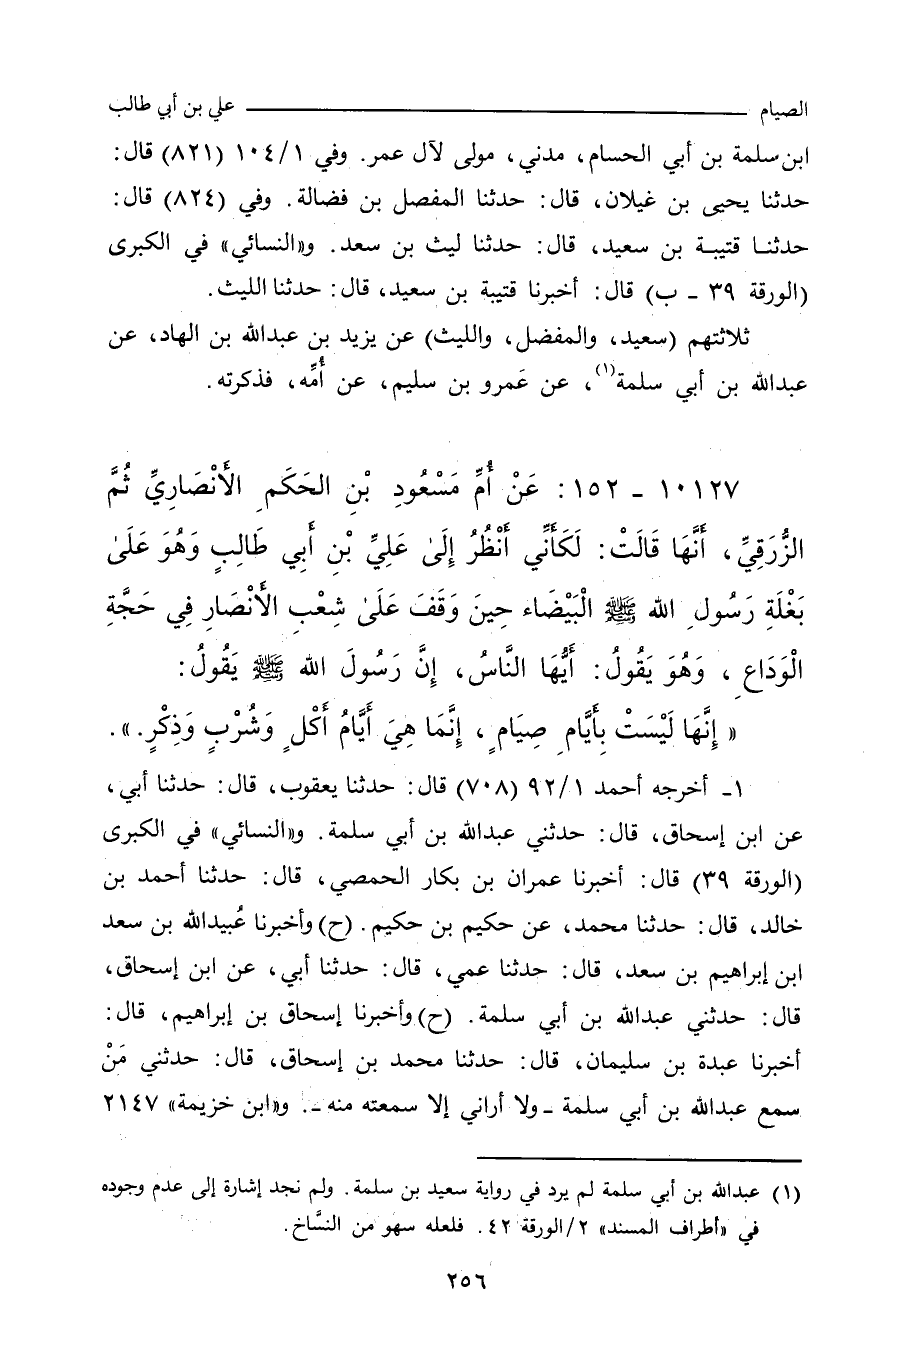 الصيام علي بن أبي طالب
ابن سلمة بن أبي الحسام، مدني، مولى لآل عمر. وفي ١٠٤/١ (٨٢١) قال:
حدثنا يحيى بن غيلان، قال: حدثنا المفصل بن فضالة. وفي (٨٢٤) قال:
حدثنـا قتيبـة بن سعيد، قال: حدثنا ليث بن سعد. و«النسائي» في الكبرى
(الورقة ٣٩ - ب) قال: أخبرنا قتيبة بن سعيد، قال: حدثنا الليث.
ثلاثتهم (سعيد، والمفضل، والليث) عن يزيد بن عبدالله بن الهاد، عن
عبدالله بن أبي سلمة(١)، عن عَمرو بن سليم، عن أُمِّه، فذكرته.
١٠١٢٧ - ١٥٢: عَنْ أُمِّ مَسْعُودِ بْنِ الحَكَمِ الأَنْصَارِيِّ ثُمَّ
الزُّرَقِيِّ، أَنَّهَا قَالَتْ: لَكَأَنِّي أَنْظُرُ إِلَىٰ عَلِيِّ بْنِ أَبِي طَالِبٍ وَهُوَ عَلَىٰ
بَغْلَةِ رَسُولِ الله ﷺ الْبَيْضَاء حِينَ وَقَفَ عَلَىٰ شِعْبِ الأَنْصَارِ فِي حَجَّةِ
الْوَدَاعِ، وَهُوَ يَقُولُ: أَيُّهَا النَّاسُ، إِنَّ رَسُولَ الله ﷺ يَقُولُ:
« إِنَّهَا لَيْسَتْ بِأَيَّامِ صِيَامٍ، إِنَّمَا هِيَ أَيَّامُ أَكْلٍ وَشُرْبٍ وَذِكْرٍ.».
١- أخرجه أحمد ٩٢/١ (٧٠٨) قال: حدثنا يعقوب، قال: حدثنا أبي،
عن ابن إسحاق، قال: حدثني عبدالله بن أبي سلمة. و«النسائي» في الكبرى
(الورقة ٣٩) قال: أخبرنا عمران بن بكار الحمصي، قال: حدثنا أحمد بن
خالد، قال: حدثنا محمد، عن حكيم بن حكيم. (ح) وأخبرنا عُبيدالله بن سعد
ابن إبراهيم بن سعد، قال: حدثنا عمي، قال: حدثنا أبي، عن ابن إسحاق،
قال: حدثني عبدالله بن أبي سلمة. (ح) وأخبرنا إسحاق بن إبراهيم، قال:
أخبرنا عبدة بن سليمان، قال: حدثنا محمد بن إسحاق، قال: حدثني مَنْ
سمع عبدالله بن أبي سلمة - ولا أراني إلا سمعته منه -. و«ابن خزيمة» ٢١٤٧
(١) عبدالله بن أبي سلمة لم يرد في رواية سعيد بن سلمة. ولم نجد إشارة إلى عدم وجوده
في «أطراف المسند» ٢/الورقة ٤٢. فلعله سهو من النسَّاخ.
٢٥٦